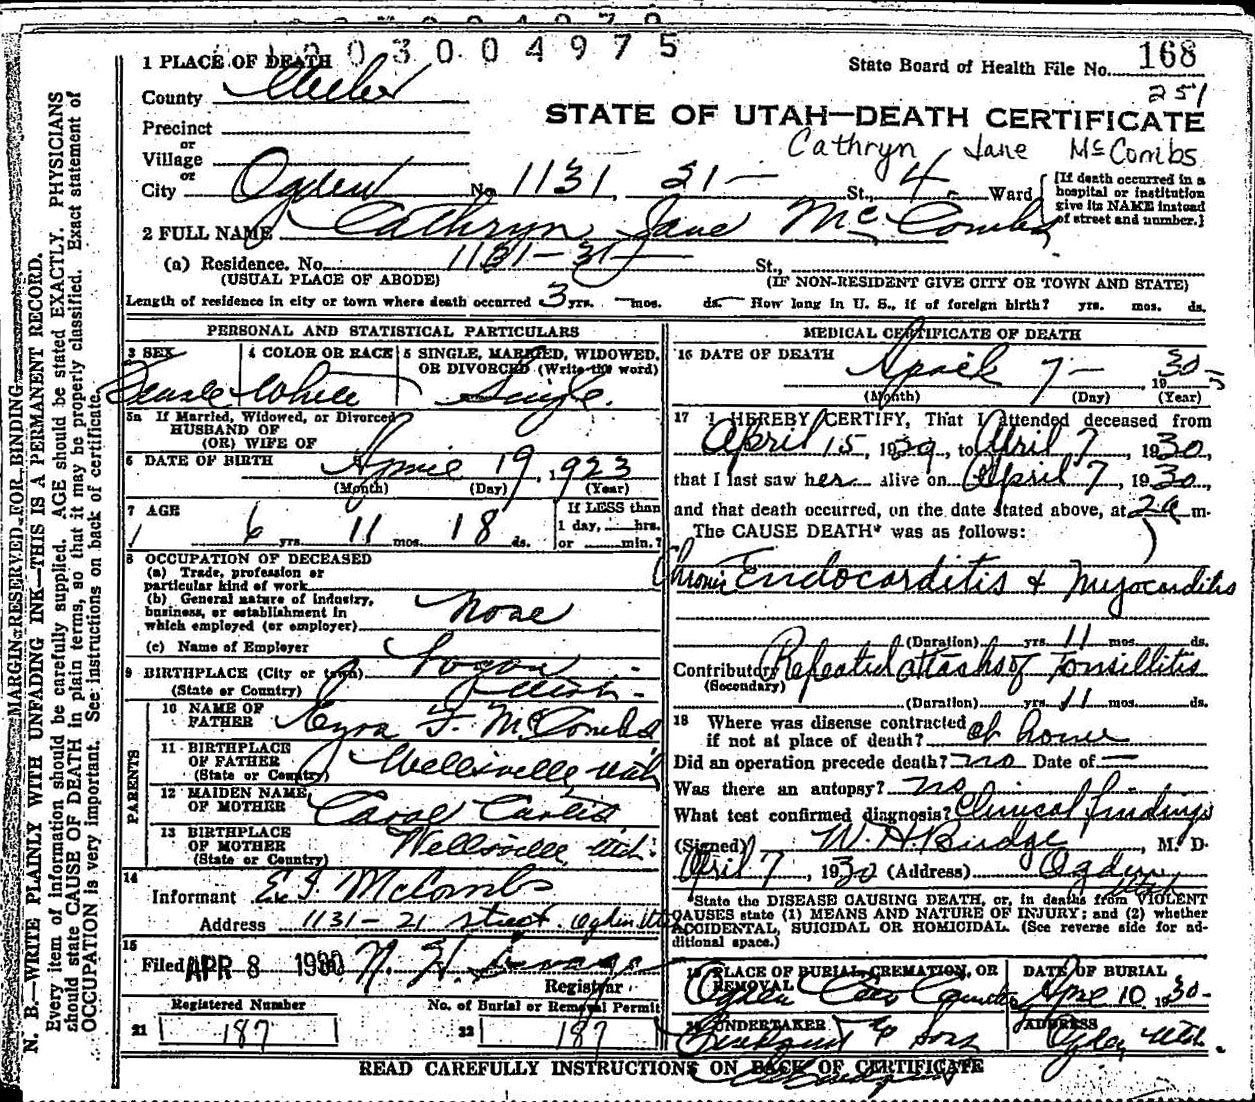 1203004975
1 PLACE OF DEATH
State Board of Health File No. 168
251
County Weber
STATE OF UTAH—DEATH CERTIFICATE
Precinct
Cathryn Jane McCombs
or
Village
or
City Ogden No. 1131 21— St., 4 Ward
[If death occurred in a hospital or institution give its NAME instead of street and number.]
2 FULL NAME Cathryn Jane McCombs
(a) Residence. No. 1131-21— St.,
(USUAL PLACE OF ABODE) (IF NON-RESIDENT GIVE CITY OR TOWN AND STATE)
Length of residence in city or town where death occurred 3 yrs. — mos. ds. — How long in U. S., if of foreign birth? yrs. mos. ds.
PERSONAL AND STATISTICAL PARTICULARS
3 SEX Female
4 COLOR OR RACE White
5 SINGLE, MARRIED, WIDOWED, OR DIVORCED (Write the word) Single.
5a If Married, Widowed, or Divorced
HUSBAND OF
(OR) WIFE OF
6 DATE OF BIRTH April 19, 1923
(Month) (Day) (Year)
7 AGE 6 yrs. 11 mos. 18 ds.
If LESS than 1 day, hrs. or min.?
8 OCCUPATION OF DECEASED
(a) Trade, profession or particular kind of work
(b) General nature of industry, business, or establishment in which employed (or employer) None
(c) Name of Employer
9 BIRTHPLACE (City or town) Logan
(State or Country) Utah-
PARENTS
10 NAME OF FATHER Ezra F. McCombs
11 BIRTHPLACE OF FATHER (State or Country) Wellsville, Utah
12 MAIDEN NAME OF MOTHER Carol Curtis
13 BIRTHPLACE OF MOTHER (State or Country) Wellsville, Utah.
14
Informant E. F. McCombs
Address 1131-21 street. Ogden Utah
15
Filed APR 8 1930
Registrar
Registered Number
21 187
No. of Burial or Removal Permit
22 187
MEDICAL CERTIFICATE OF DEATH
16 DATE OF DEATH April 7— 1930
(Month) (Day) (Year)
17 I HEREBY CERTIFY, That I attended deceased from
April 15, 1929, to April 7, 1930,
that I last saw her alive on April 7, 1930,
and that death occurred, on the date stated above, at 2a m.
The CAUSE DEATH* was as follows:
Chronic Endocarditis & Myocarditis
(Duration) yrs. 11 mos. ds.
Contributory Repeated attacks of Tonsillitis
(Secondary)
(Duration) yrs. 11 mos. ds.
18 Where was disease contracted if not at place of death? at home
Did an operation precede death? no Date of —
Was there an autopsy? no
What test confirmed diagnosis? Clinical findings
(Signed) W. H. Budge, M. D.
April 7, 1930 (Address) Ogden Utah
*State the DISEASE CAUSING DEATH, or, in deaths from VIOLENT
CAUSES state (1) MEANS AND NATURE OF INJURY; and (2) whether
ACCIDENTAL, SUICIDAL OR HOMICIDAL. (See reverse side for ad-
ditional space.)
19 PLACE OF BURIAL, CREMATION, OR REMOVAL Ogden
DATE OF BURIAL Apr 10 1930-
20 UNDERTAKER Lindquist & Sons
ADDRESS Ogden Utah.
READ CAREFULLY INSTRUCTIONS ON BACK OF CERTIFICATE
MARGIN RESERVED FOR BINDING
N. B.—WRITE PLAINLY WITH UNFADING INK—THIS IS A PERMANENT RECORD.
Every item of information should be carefully supplied. AGE should be stated EXACTLY. PHYSICIANS
should state CAUSE OF DEATH in plain terms, so that it may be properly classified. Exact statement of
OCCUPATION is very important. See instructions on back of certificate.